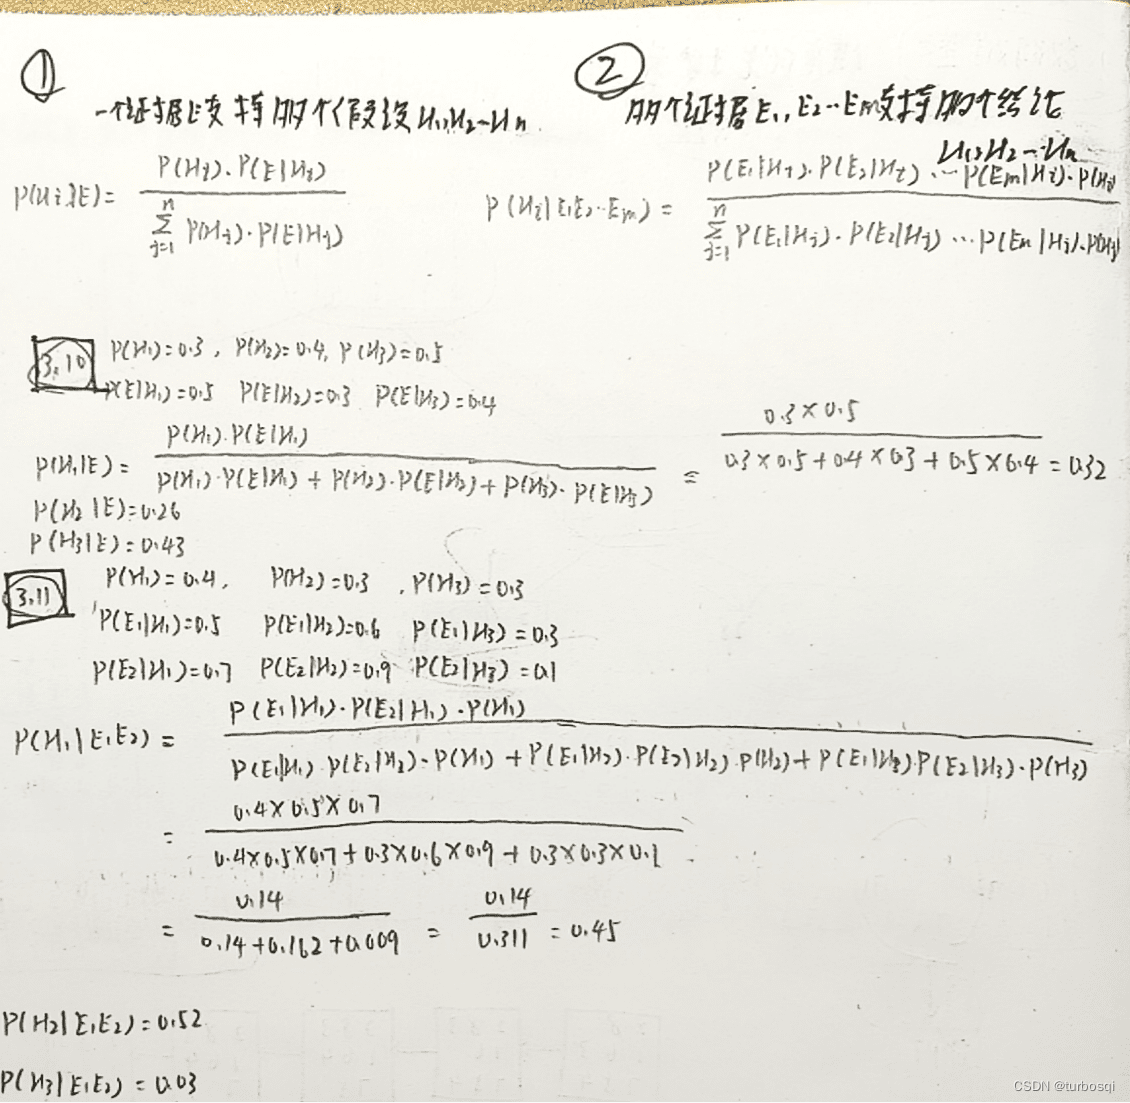 ①
一个证据E支持多个假设H₁,H₂~Hn
P(Hi|E)= P(Hi)·P(E|Hi) / ∑ⁿⱼ₌₁ P(Hj)·P(E|Hj)
②
多个证据E₁,E₂…Em支持多个结论
H₁,H₂…Hn
P(Hi|E₁E₂…Em)= P(E₁|Hi)·P(E₂|Hi)…P(Em|Hi)·P(Hi) / ∑ⁿⱼ₌₁ P(E₁|Hj)·P(E₂|Hj)…P(Em|Hj)·P(Hj)
3.10 P(H₁)=0.3, P(H₂)=0.4, P(H₃)=0.5
P(E|H₁)=0.5 P(E|H₂)=0.3 P(E|H₃)=0.4
P(H₁|E)= P(H₁)·P(E|H₁) / P(H₁)·P(E|H₁)+P(H₂)·P(E|H₂)+P(H₃)·P(E|H₃) = 0.3×0.5 / 0.3×0.5+0.4×0.3+0.5×0.4 =0.32
P(H₂|E)=0.26
P(H₃|E)=0.43
3.11 P(H₁)=0.4, P(H₂)=0.3, P(H₃)=0.3
P(E₁|H₁)=0.5 P(E₁|H₂)=0.6 P(E₁|H₃)=0.3
P(E₂|H₁)=0.7 P(E₂|H₂)=0.9 P(E₂|H₃)=0.1
P(H₁|E₁E₂)= P(E₁|H₁)·P(E₂|H₁)·P(H₁) / P(E₁|H₁)·P(E₂|H₁)·P(H₁)+P(E₁|H₂)·P(E₂|H₂)·P(H₂)+P(E₁|H₃)·P(E₂|H₃)·P(H₃)
= 0.4×0.5×0.7 / 0.4×0.5×0.7+0.3×0.6×0.9+0.3×0.3×0.1
= 0.14 / 0.14+0.162+0.009 = 0.14 / 0.311 =0.45
P(H₂|E₁E₂)=0.52
P(H₃|E₁E₂)=0.03
CSDN @turbosqi